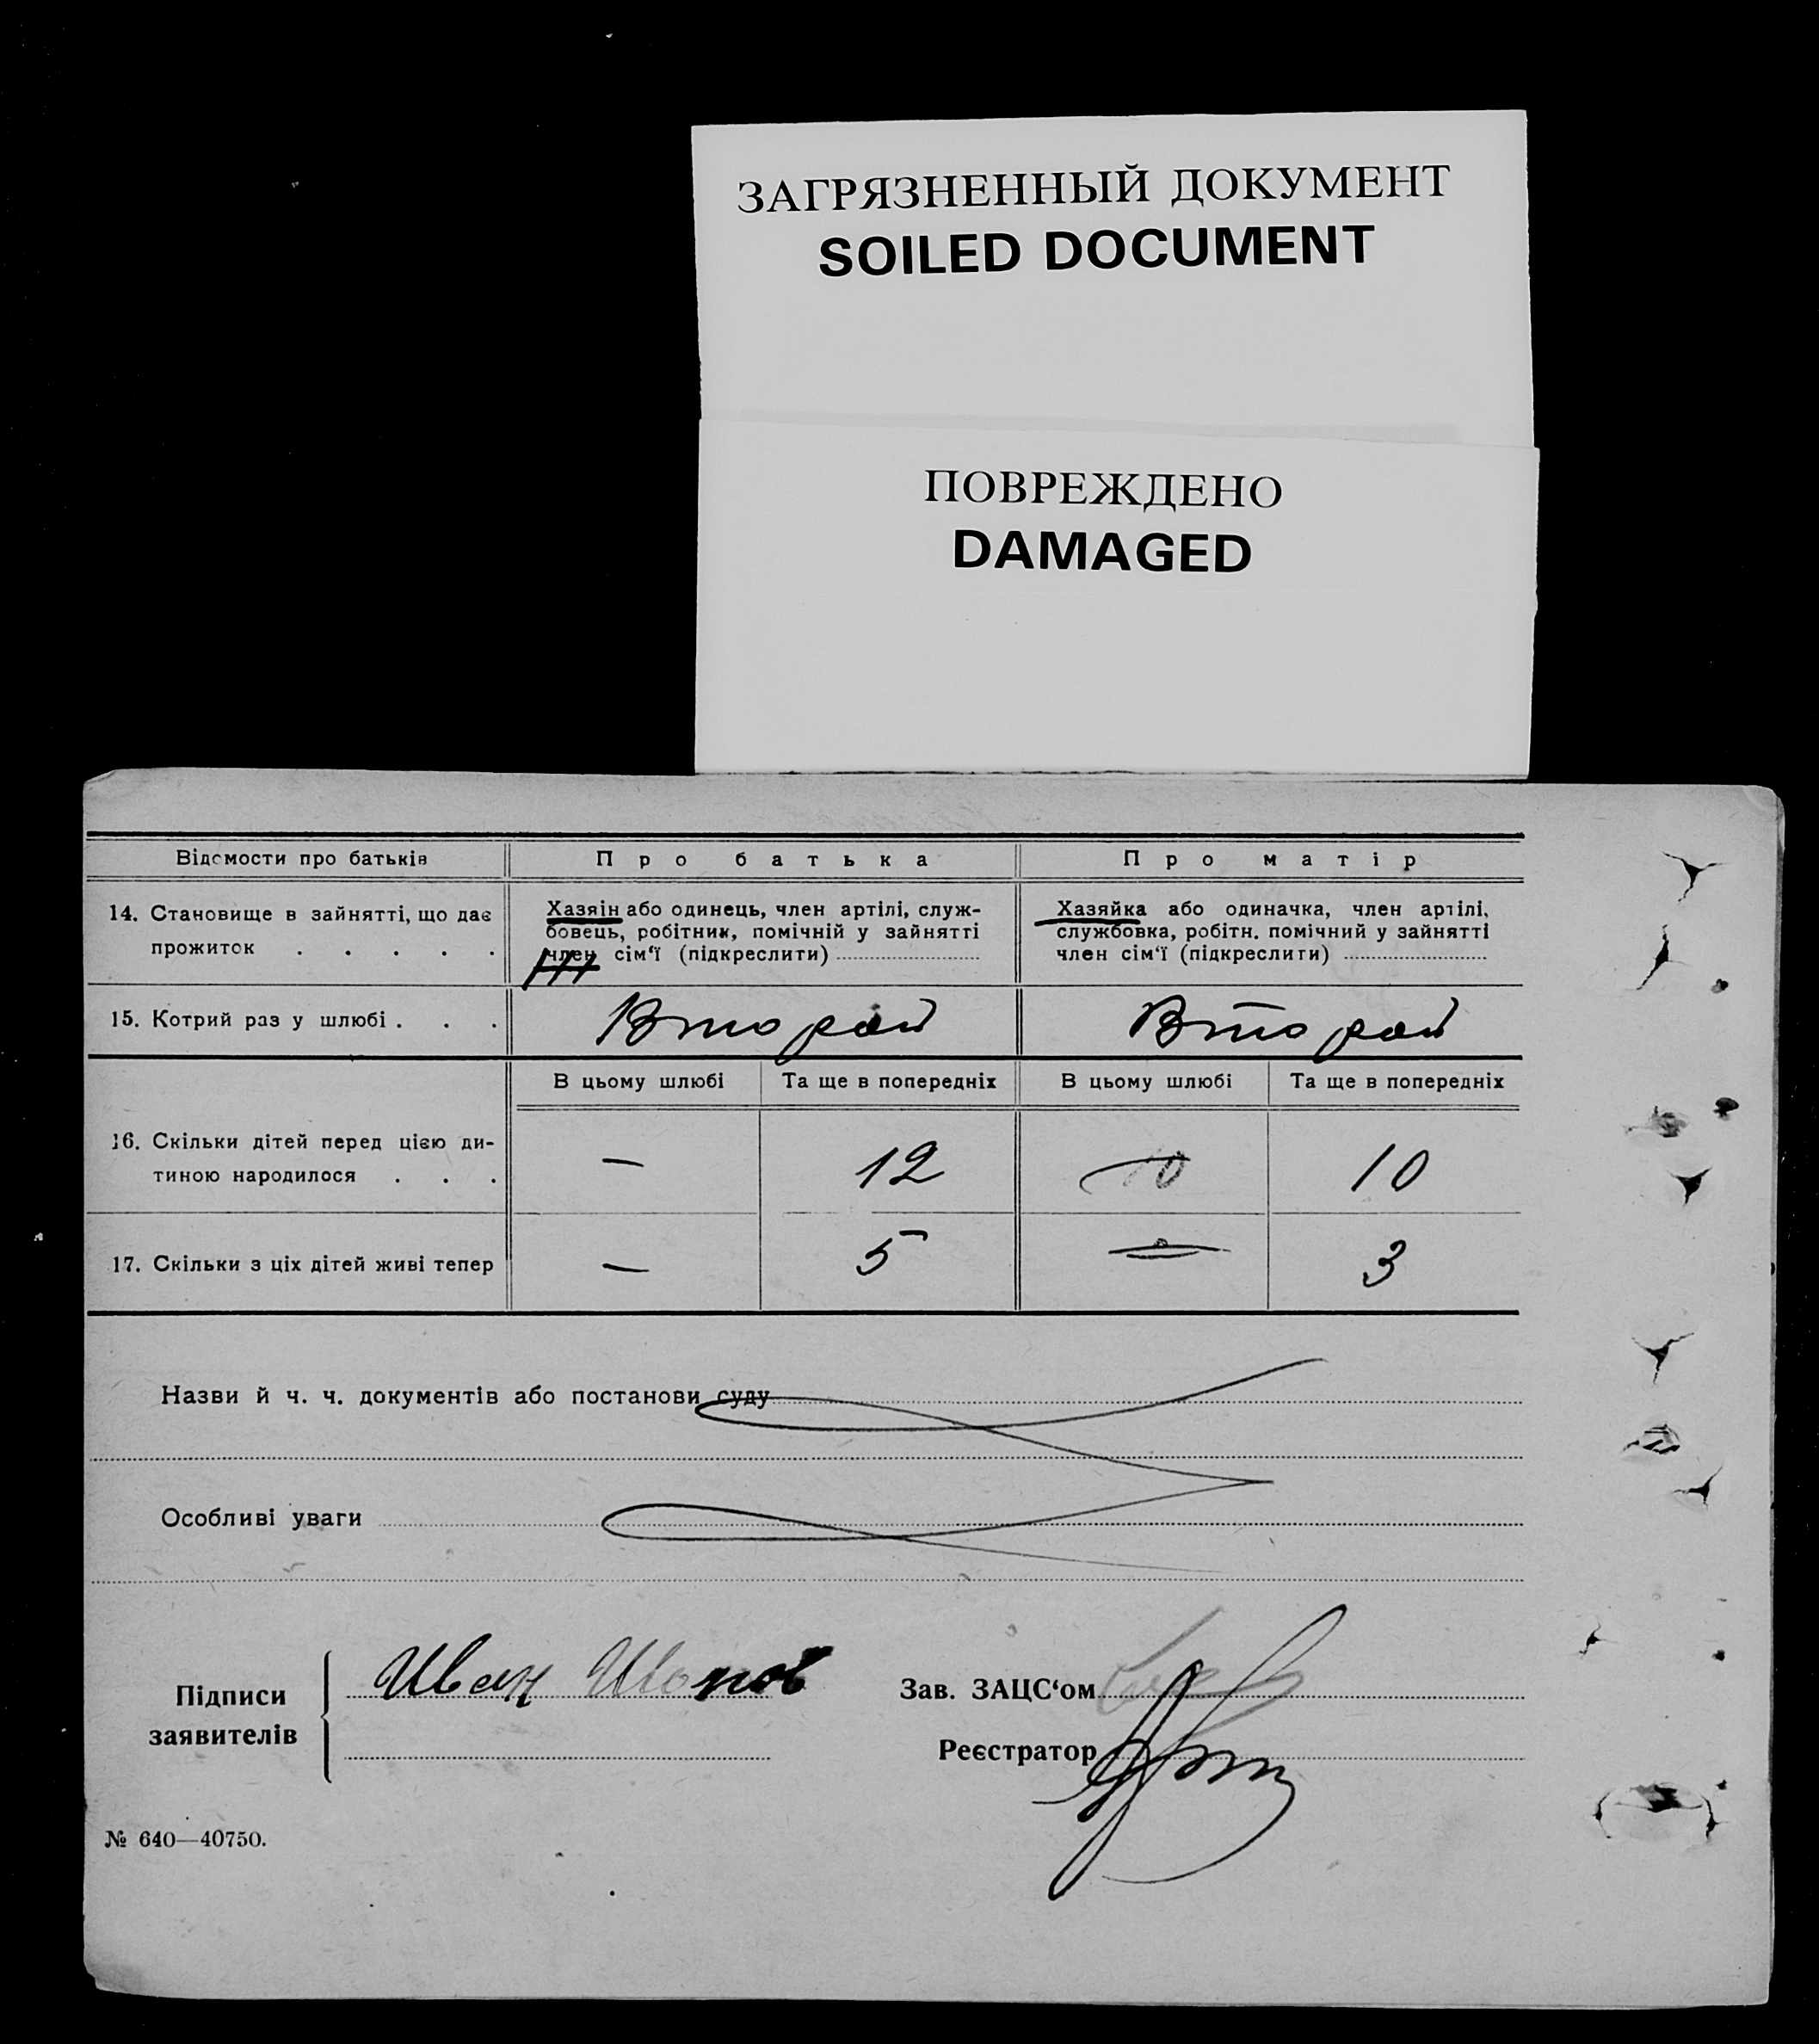 ЗАГРЯЗНЕННЫЙ ДОКУМЕНТ
SOILED DOCUMENT
ПОВРЕЖДЕНО
DAMAGED
Відомости про батьків Про батька Про матір
14. Становище в зайнятті, що дає
прожиток . . . . .
Хазяін або одинець, член артілі, служ-
бовець, робітник, помічній у зайнятті
член сім‘ї (підкреслити)
Хазяйка або одиначка, член артілі,
службовка, робітн. помічний у зайнятті
член сім‘ї (підкреслити)
15. Котрий раз у шлюбі . . . Второй Второй
В цьому шлюбі Та ще в попередніх В цьому шлюбі Та ще в попередніх
16. Скільки дітей перед цією ди-
тиною народилося . . .
— 12 10 10
17. Скільки з ціх дітей живі тепер — 5 — 3
Назви й ч. ч. документів або постанови суду
Особливі уваги
Підписи
заявителів
Иван
Зав. ЗАЦС‘ом
Реєстратор
№ 640—40750.